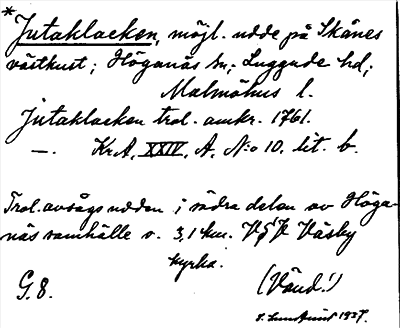 * Jutaklacken, möjl. udde på Skånes
västkust; Höganäs sn; Luggude hd;
Malmöhus l.
Jutaklacken trol. omkr. 1761.
—. Kr.A. XXIV, A. N:o 10. lit. b.
Trol. avsågs udden i södra delen av Höga-
näs samhälle o. 3,1 km. V Väsby
kyrka.
G. 8. (Vänd!)
1937.